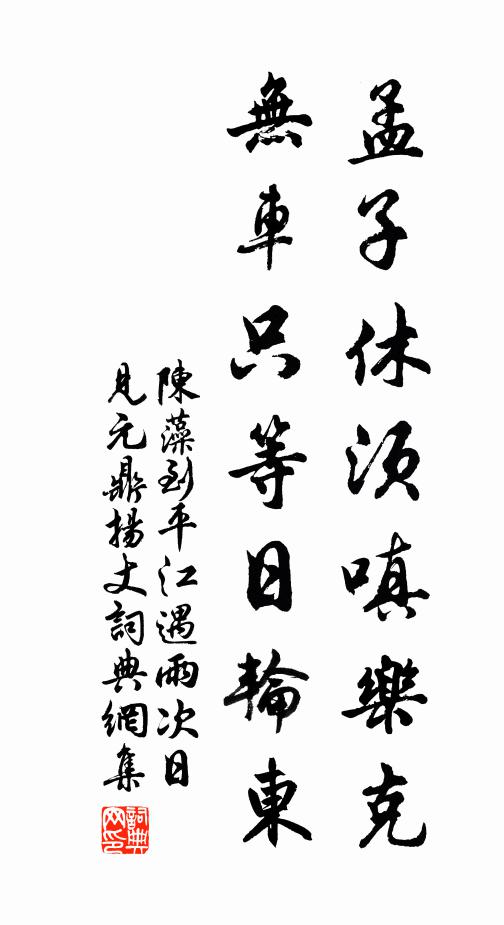 孟子休須嗔樂克
無車只等日輪東
陳藻到平江遇雨次日
見元鼎揚丈詞典網集
詞典
网印